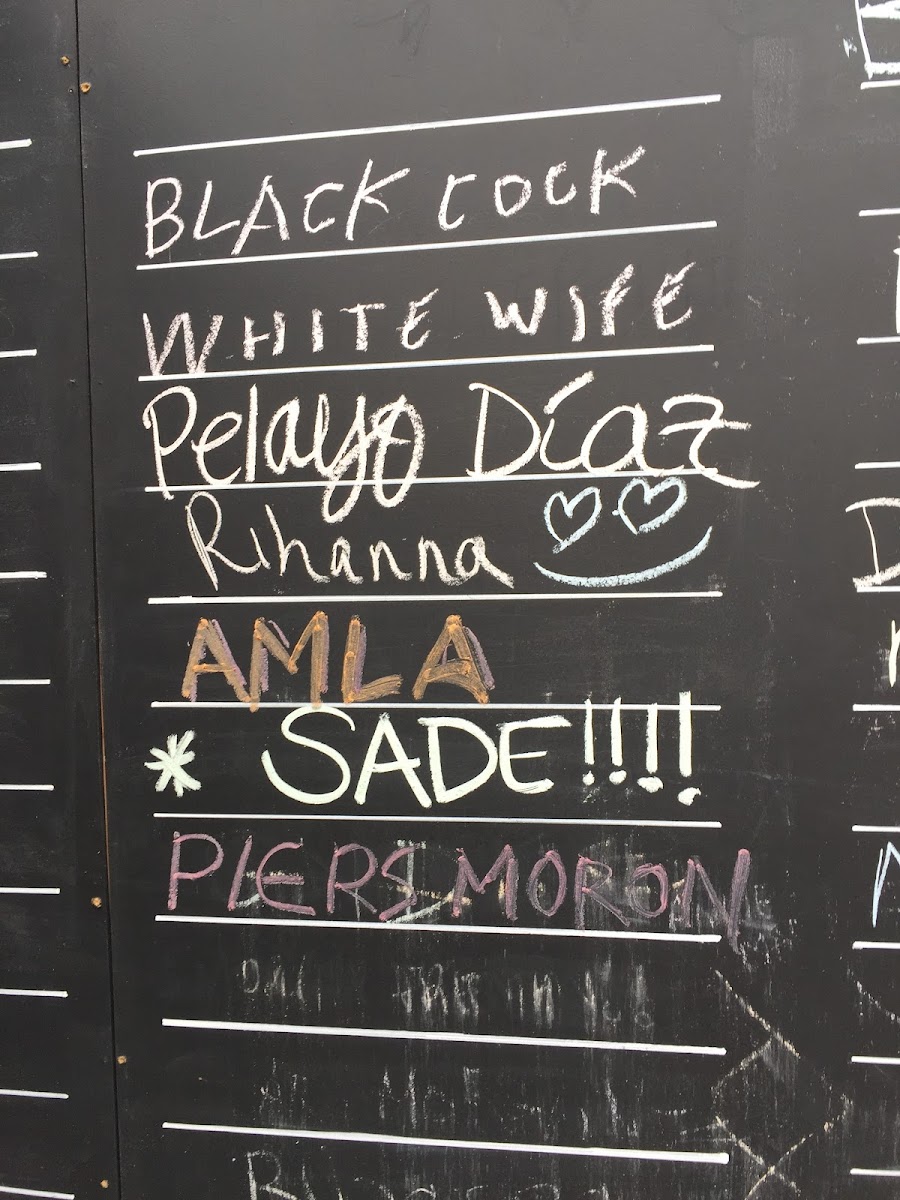 BLACK COCK
WHITE WIFE
Pelayo Díaz
Rihanna
AMLA
* SADE!!!!
PIERS MORON